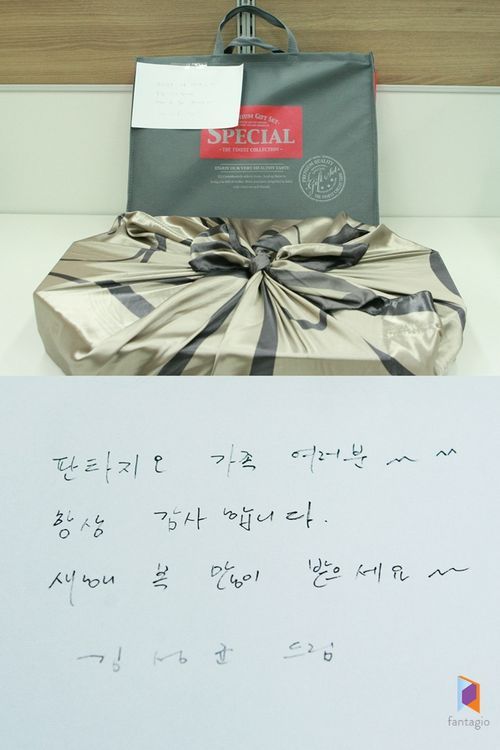 PREMIUM GIFT SET
SPECIAL
- THE FINEST COLLECTION -
ENJOY OUR VERY HEALTHY TASTE
PREMIUM QUALITY
Gift Set
판타지오 가족 여러분 ~ ^^
항상 감사합니다.
새해 복 많이 받으세요 ~
김성균 드림
fantagio